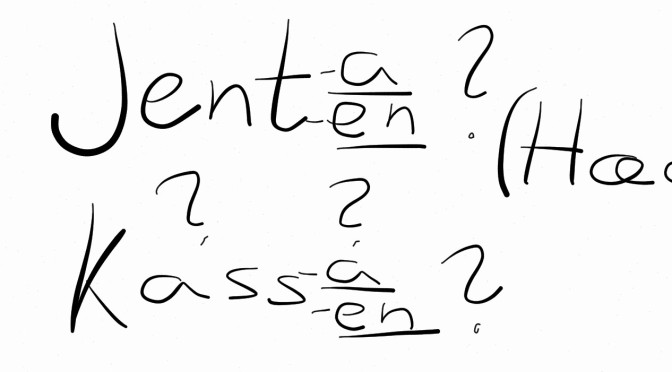 Jent-a/-en ? (Hæ
? ?
Kass-a/-en ?